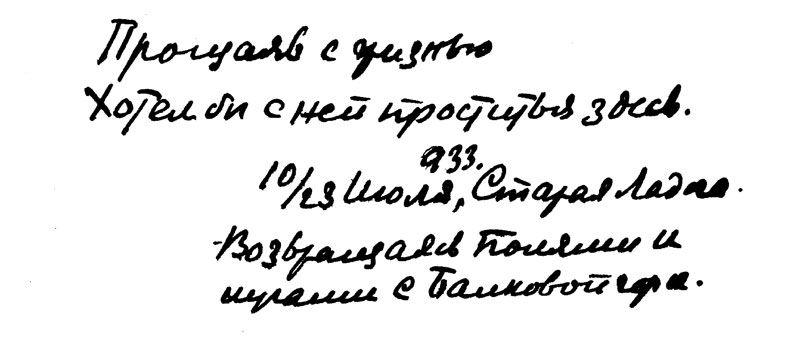 Прощаясь с жизнью
Хотел бы с ней проститься здесь.
933.
10/23 Июля, Старая Ладога.
Возвращаясь полями и
лугами с Балковой горы.